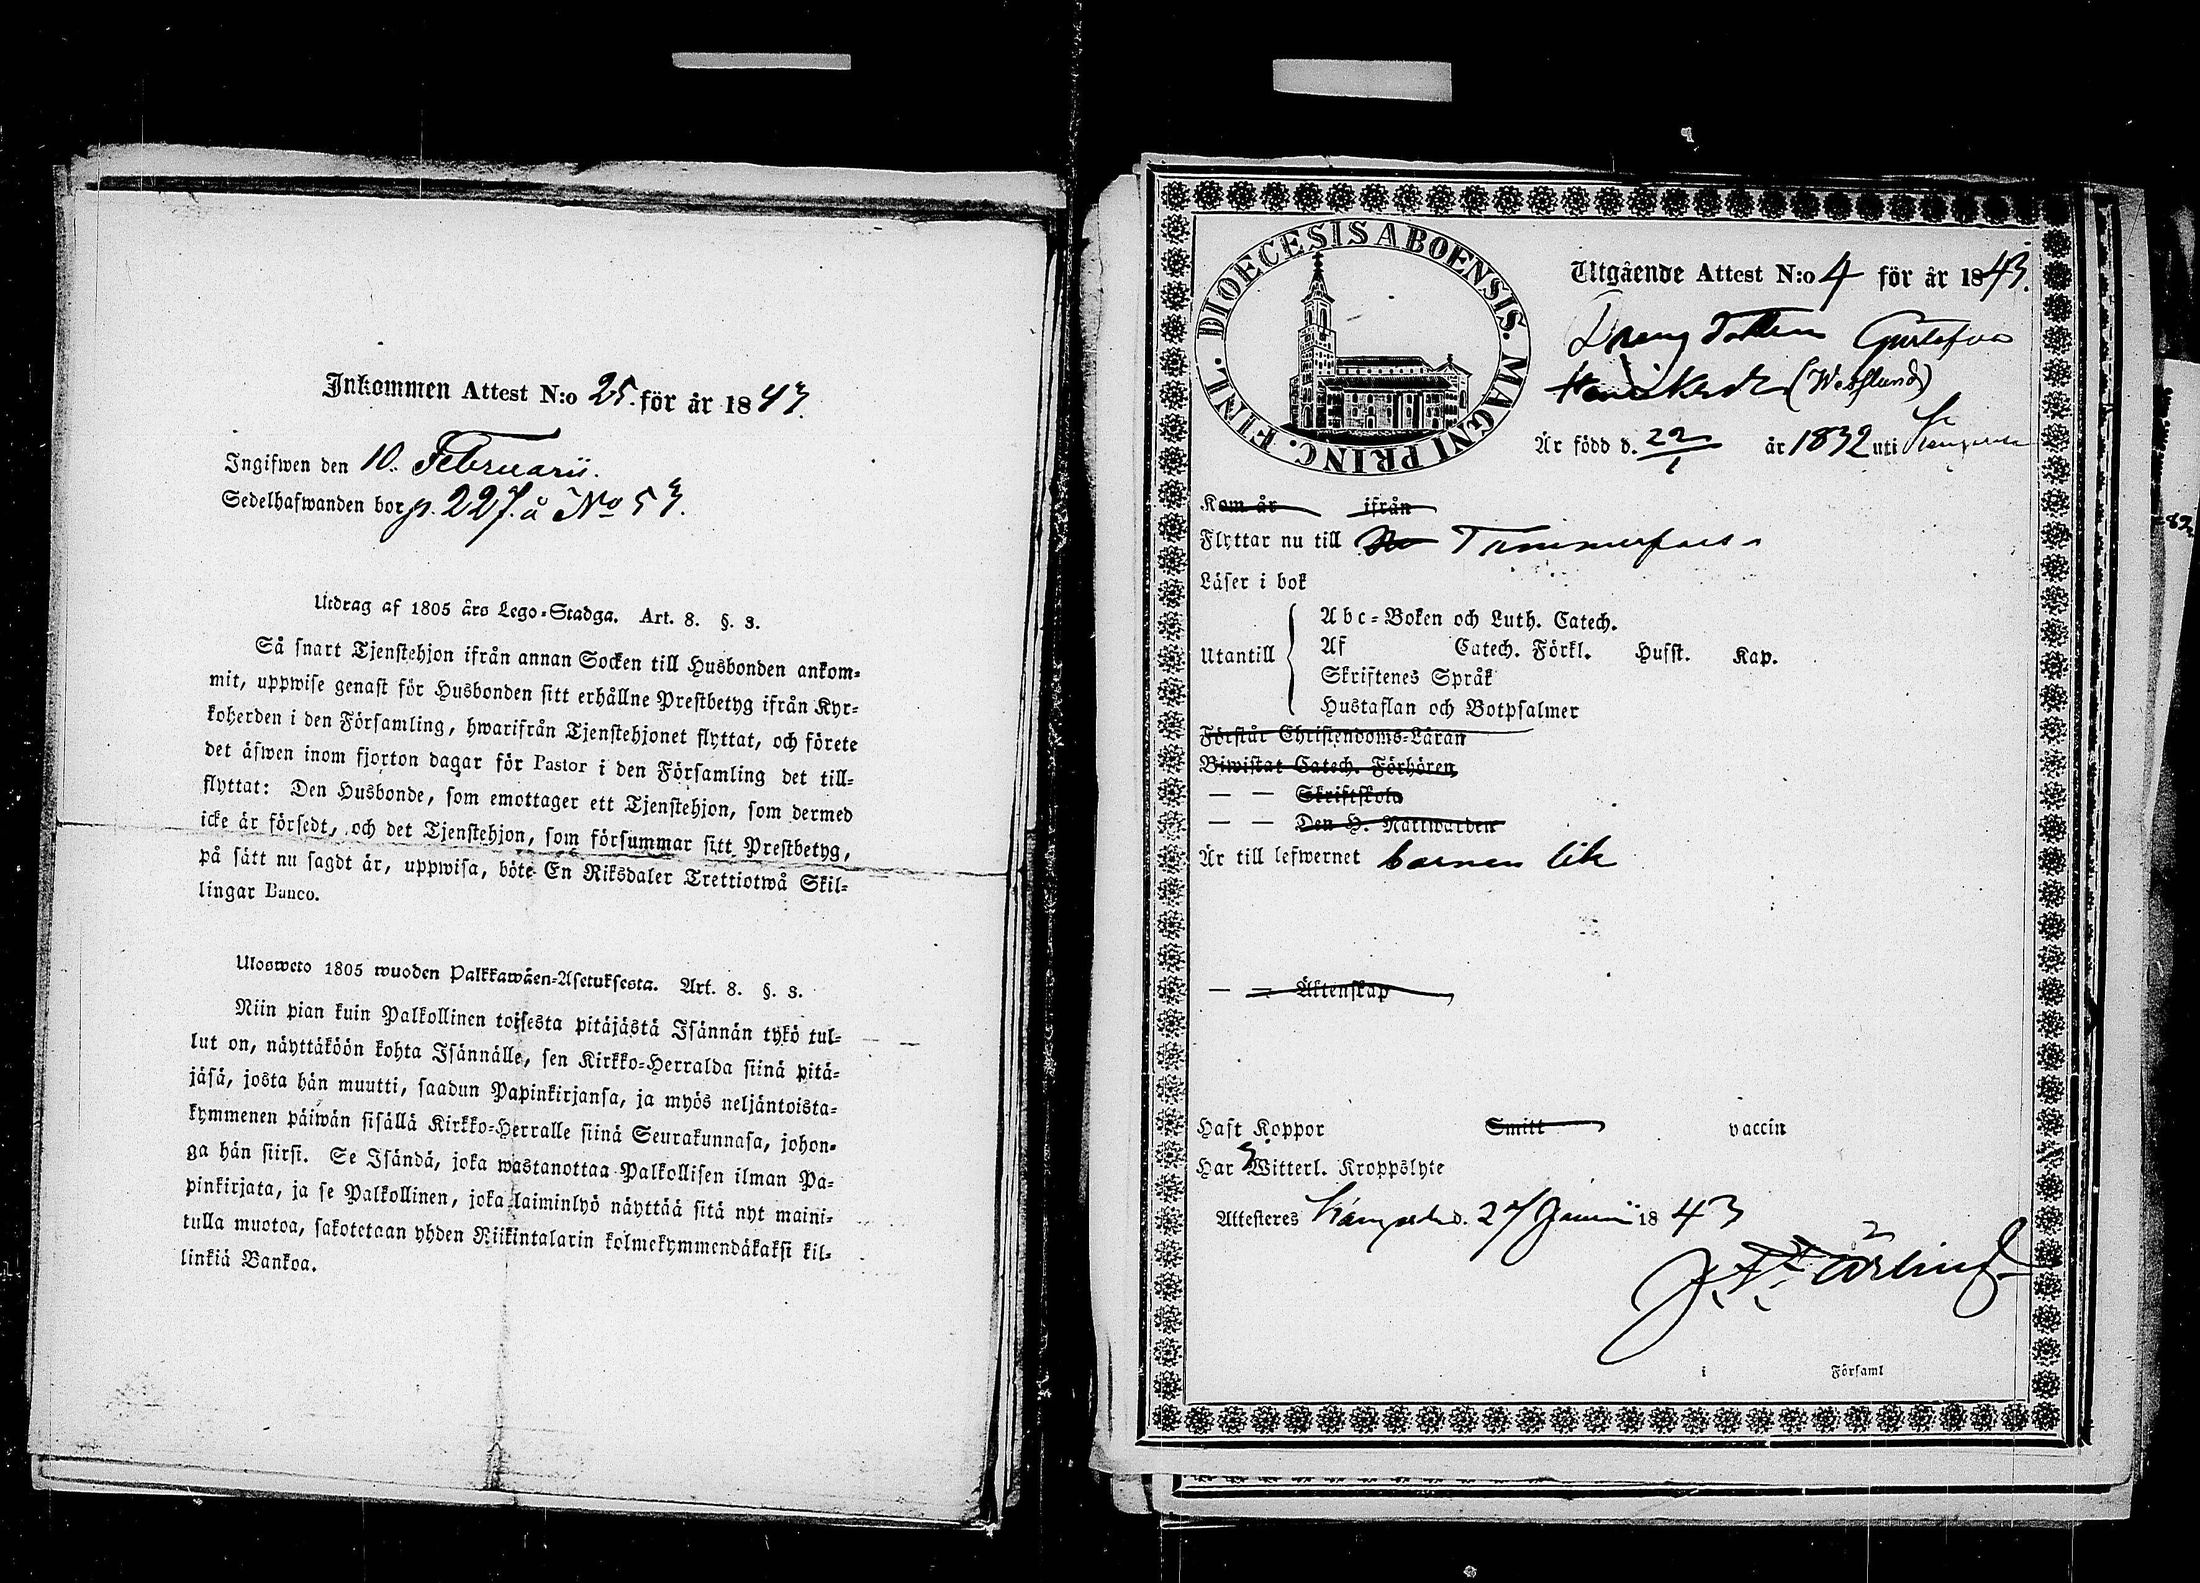 Inkommen Attest N:o 25. för år 1843.
Ingifwen den 10. Februarii.
Sedelhafwanden bor p. 227. å No 53.
Utdrag af 1805 års Lego-Stadga. Art. 8. §. 3.
Så snart Tjenstehjon ifrån annan Socken till Husbonden ankom-
mit, uppwise genast för Husbonden sitt erhållne Prestbetyg ifrån Kyr-
koherden i den Församling, hwarifrån Tjenstehjonet flyttat, och förete
det äfwen inom fjorton dagar för Pastor i den Församling det till-
flyttat: Den Husbonde, som emottager ett Tjenstehjon, som dermed
icke är försedt, och det Tjenstehjon, som försummar sitt Prestbetyg,
på sätt nu sagdt är, uppwisa, böte En Riksdaler Trettiotwå Skil-
lingar Banco.
Ulosweto 1805 wuoden Palkkawäen-Asetuksesta. Art. 8. §. 3.
Niin pian kuin Palkollinen toisesta pitäjästä Isännän tykö tul-
lut on, näyttäköön kohta Isännälle, sen Kirkko-Herralda siinä pitä-
jäsä, josta hän muutti, saadun Papinkirjansa, ja myös neljäntoista-
kymmenen päiwän sisällä Kirkko-Herralle siinä Seurakunnasa, johon-
ga hän siirsi. Se Isändä, joka wastanottaa Palkollisen ilman Pa-
pinkirjata, ja se Palkollinen, joka laiminlyö näyttää sitä nyt maini-
tulla muotoa, sakotetaan yhden Riikintalarin kolmekymmendäkaksi kil-
linkiä Bankoa.
DIOECESIS ABOENSIS. MAGNI PRINC. FINL.
Utgående Attest N:o 4 för år 1843.
Dreng Gustafva
(Westlund)
Är född d. 22/1 år 1832 uti
Kom år ifrån
Flyttar nu till Tammerfors
Läser i bok
Abc-Boken och Luth. Catech.
Utantill Af Catech. Förkl. Husst. Kap.
Skriftenes Språk
Hustaflan och Botpsalmer
Förstår Christendoms-Läran
Biwistat Catech. Förhören
— — Skriftskola
— — Den H. Nattwarden
Är till lefwernet barnen lik
— — Äktenskap
Haft Koppor Smitt vaccin
Har Witterl. Kroppslyte
Attesteres d. 27 Januarii 1843
i Församl